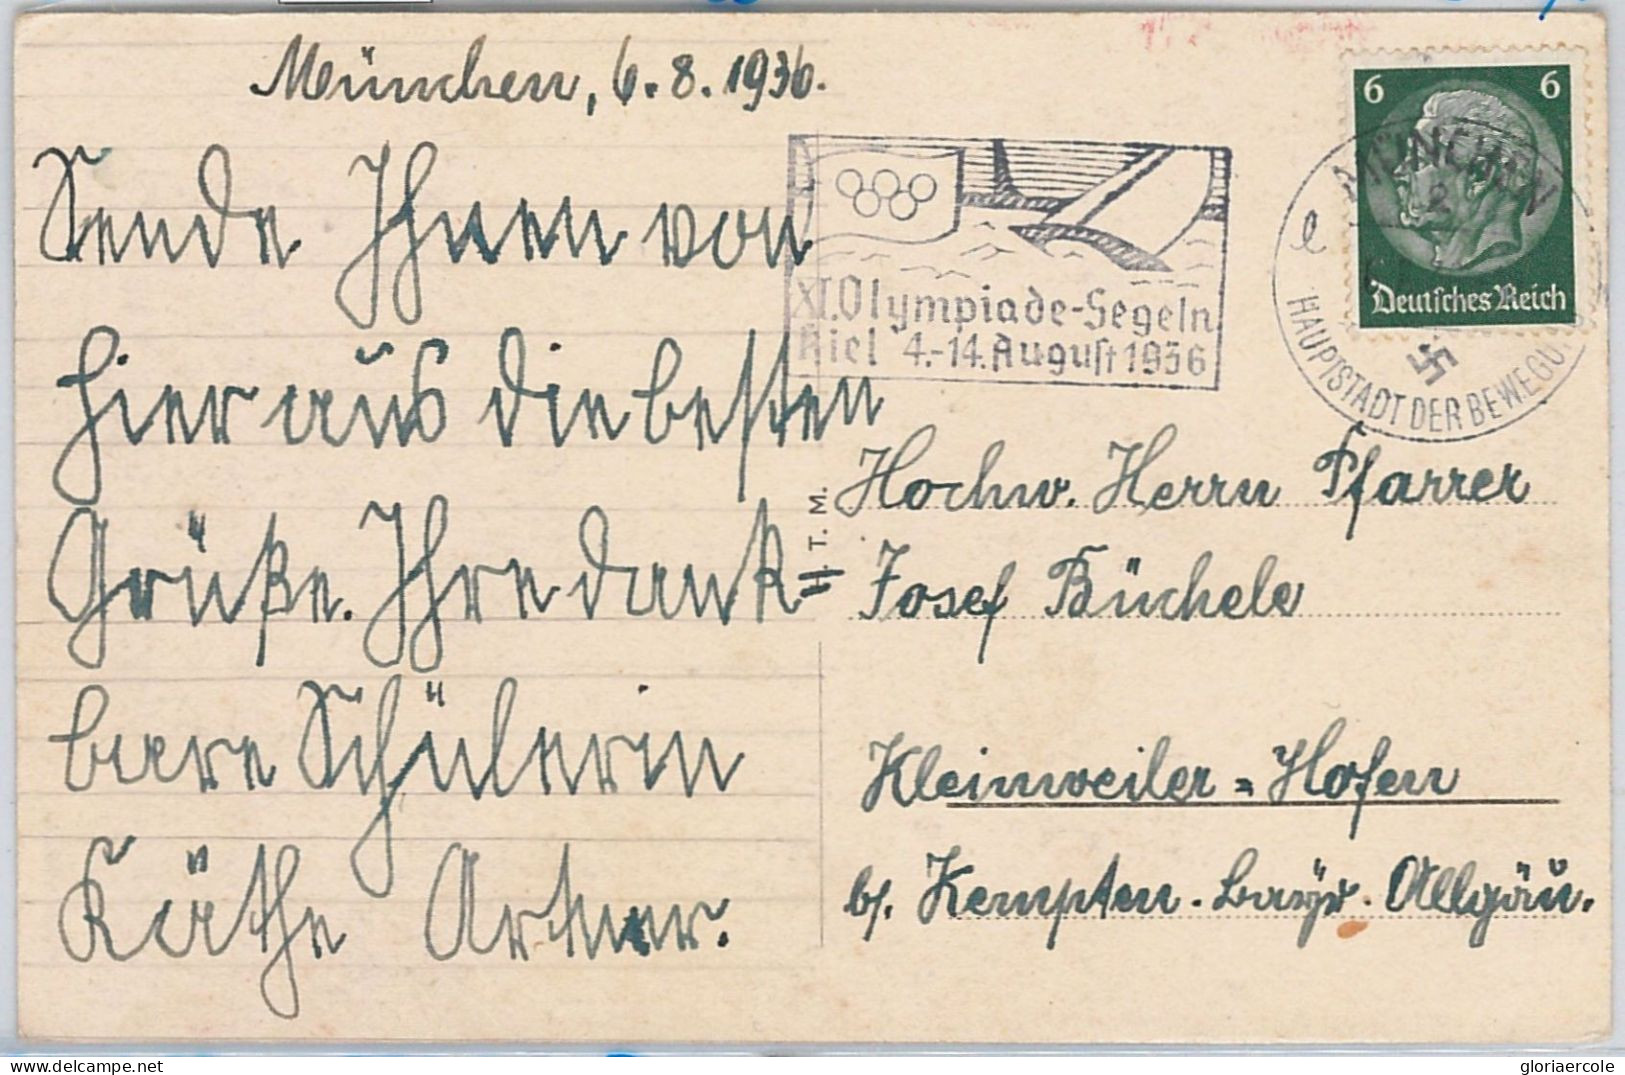 München, 6.8.1936.
Sende Ihnen von
hier aus die besten
Grüße. Ihre dank-
bare Schülerin
Käthe
XI. Olympiade-Segeln
Kiel 4.-14. August 1936
6 6
Deutsches Reich
MÜNCHEN
2
HAUPTSTADT DER BEWEGU
H. T. M.
Hochw. Herrn Pfarrer
Josef Büchele
Kleinweiler-Hofen
b/. Kempten. bayr. Allgäu.
gloriaercole